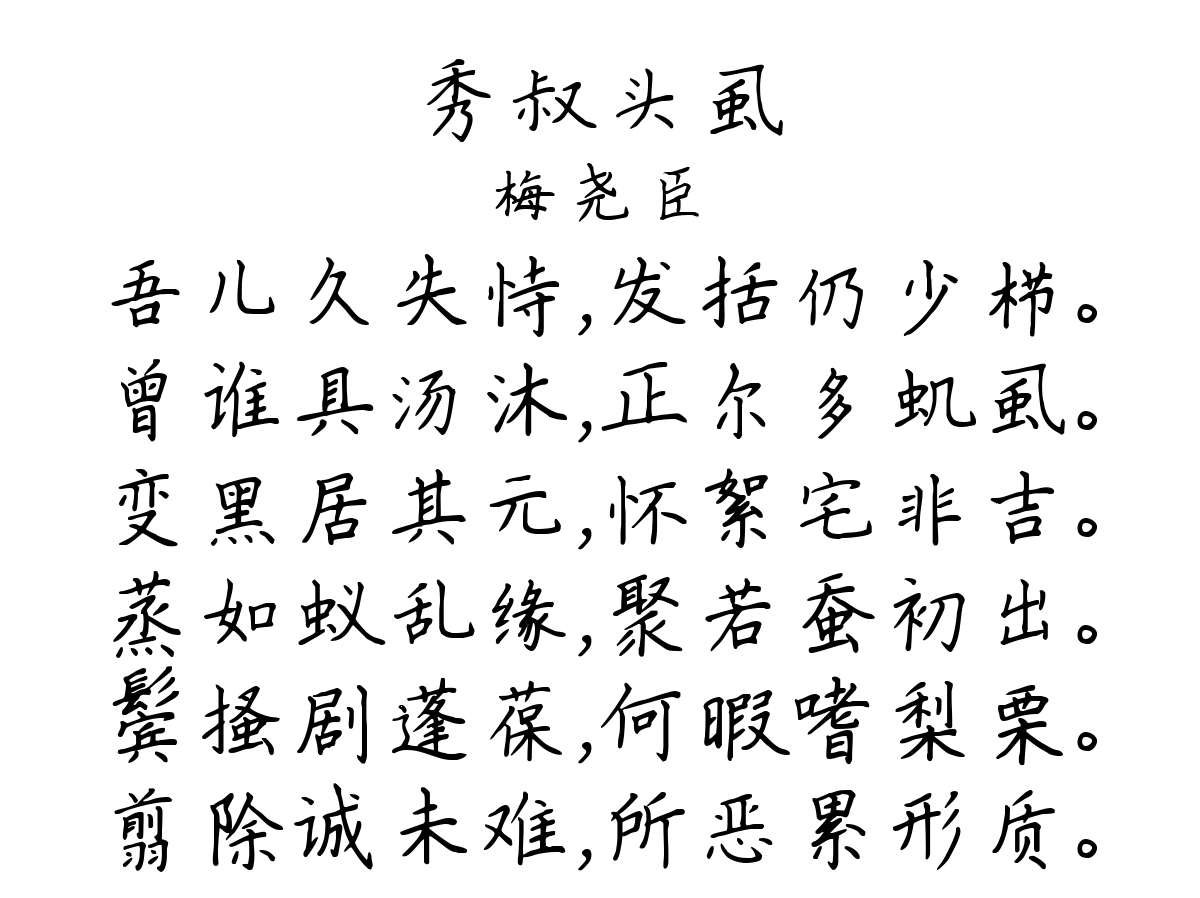 秀叔头虱
梅尧臣
吾儿久失恃,发括仍少栉。
曾谁具汤沐,正尔多虮虱。
变黑居其元,怀絮宅非吉。
蒸如蚁乱缘,聚若蚕初出。
鬓搔剧蓬葆,何暇嗜梨栗。
剪除诚未难,所恶累形质。